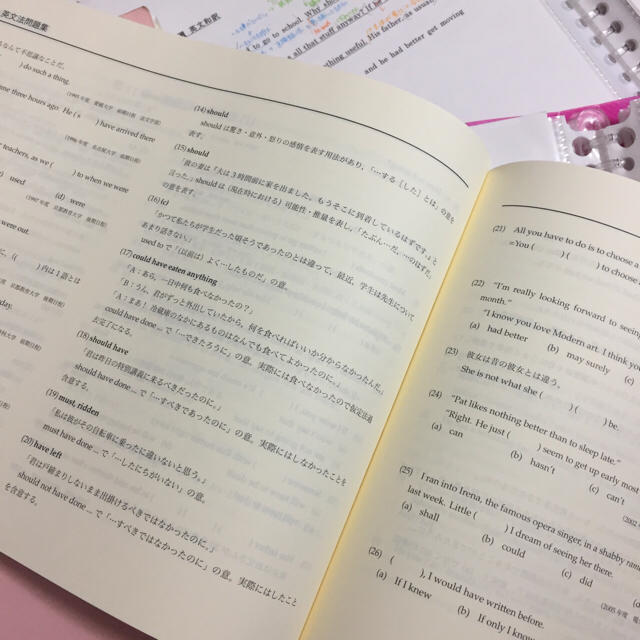 英文法問題集
英文和訳
to go to school. Why
all that stuff anyway? If
thing useful. His father, as usual,
and he had better get moving
なんて不思議なことだ。
) do such a thing.
ame three hours ago. He (s ) have arrived there
teachers, as we ( ) to when we were
) used (d) were
were out.
day.
(14) should
should は驚き・意外・怒りの感情を表す用法があり、「…する［した］とは」の意を
表す。
(15) should
「彼の妻は『夫は3時間前に家を出ました。もうそこに到着しているはずです。』と
言った」should は（現在時における）可能性・推量を表し、「たぶん…だ、…のはずだ」
の意を表す。
(16) (c)
「かつて私たちが学生だった頃そうであったのとは違って、最近、学生は先生について
あまり話さない」
used to で「（以前は）よく…したものだ」の意。
(17) could have eaten anything
「A：あら、一日中何も食べなかったの？」
「B：うん、君がずっと外出していたから、何を食べればいいか分からなかったんだ」
「A：まあ！冷蔵庫のなかにあるものはなんでも食べてよかったのに。」
could have done ... で「…できたろうに」の意。実際には食べなかったので仮定法過
去完了になる。
(18) should have
「君は昨日の特別講義に来るべきだったのに。」
should have done ... で「…すべきであったのに」の意。実際にはしなかったことを
含意する。
(19) must, ridden
「私は彼がその自転車に乗ったに違いないと思う。」
must have done ... で「…したにちがいない」の意。
(20) have left
「君は戸締まりしないまま出掛けるべきではなかったのに。」
should not have done ... で「…すべきではなかったのに」の意。実際にはしたこと
を含意する。
(21) All you have to do is to choose a
=You ( ) ( ) to choose a
(22) "I'm really looking forward to seeing
month."
"I know you love Modern art. I think you
(a) had better (b) may surely (c)
(23) 彼女は昔の彼女とは違う。
She is not what she ( ) ( ) be.
(24) "Pat likes nothing better than to sleep late."
"Right. He just ( ) seem to get up early most
(a) can (b) hasn't (c) can't
(25) I ran into Irena, the famous opera singer, in a shabby
last week. Little ( ) I dream of seeing her there.
(a) shall (b) could (c) did
(26) ( ), I would have written before.
(a) If I knew (b) If only I know